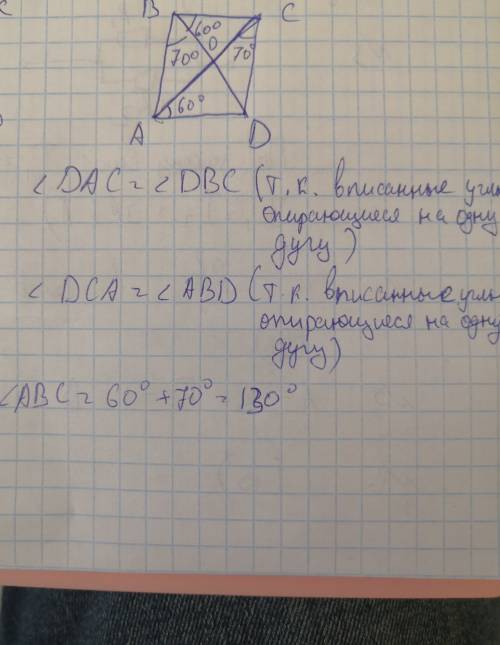 B C
60°
70° O 70°
60°
A D
∠DAC = ∠DBC (т.к. вписанные углы
опирающиеся на одну
дугу)
∠DCA = ∠ABD (т.к. вписанные углы
опирающиеся на одну
дугу)
∠ABC = 60° + 70° = 130°